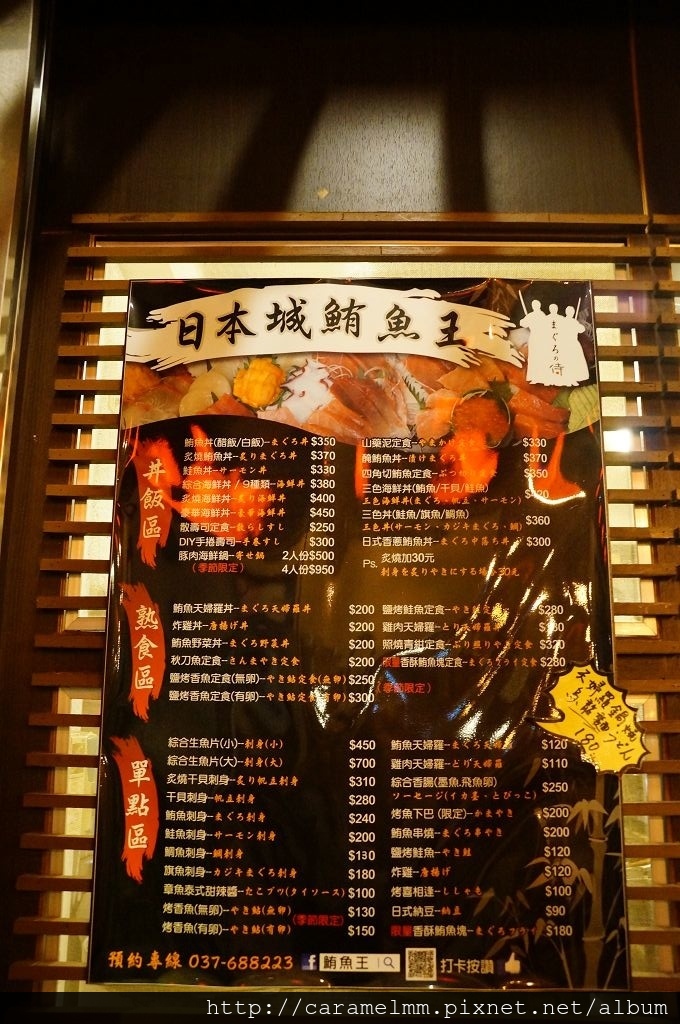 日本城鮪魚王
まぐろの侍
丼飯區
鮪魚丼(醋飯/白飯)-まぐろ丼 $350
炙燒鮪魚丼-炙りまぐろ丼 $370
鮭魚丼-サーモン丼 $330
綜合海鮮丼/9種類-海鮮丼 $380
炙燒海鮮丼-炙り海鮮丼 $400
豪華海鮮丼-豪華海鮮丼 $450
散壽司定食-散らしすし $250
DIY手捲壽司-手巻すし $300
豚肉海鮮鍋-寄せ鍋 2人份$500
(季節限定) 4人份$950
山藥泥定食-やまかけ $330
醃鮪魚丼-漬けまぐろ丼 $370
四角切鮪魚定食-ぶつ $350
三色海鮮丼(鮪魚/干貝/鮭魚)
三色海鮮丼(まぐろ・帆立・サーモン)
三色丼(鮭魚/旗魚/鯛魚) $360
三色丼(サーモン・カジキまぐろ・鯛)
日式香蔥鮪魚丼-まぐろ中落ち丼 $300
Ps. 炙燒加30元
刺身を炙りやきにする場 30元
熟食區
鮪魚天婦羅丼-まぐろ天婦羅丼 $200
炸雞丼-唐揚げ丼 $200
鮪魚野菜丼-まぐろ野菜丼 $200
秋刀魚定食-さんまやき定食 $200
鹽烤香魚定食(無卵)-やき鮎定食(無卵) $250
鹽烤香魚定食(有卵)-やき鮎定食(有卵) $300
(季節限定)
鹽烤鮭魚定食-やき鮭定食 $280
雞肉天婦羅-とり天婦羅
照燒青魽定食-ぶり照りやき定食 $320
限量香酥鮪魚塊定食-まぐろフライ定食 $280
天婦羅鍋燒
烏龍麵うどん
180
單點區
綜合生魚片(小)-刺身(小) $450
綜合生魚片(大)-刺身(大) $700
炙燒干貝刺身-炙り帆立刺身 $310
干貝刺身-帆立刺身 $280
鮪魚刺身-まぐろ刺身 $240
鮭魚刺身-サーモン刺身 $200
鯛魚刺身-鯛刺身 $130
旗魚刺身-カジキまぐろ刺身 $180
章魚泰式甜辣醬-たこブツ(タイソース) $100
烤香魚(無卵)-やき鮎(無卵) $130
烤香魚(有卵)-やき鮎(有卵) $150
(季節限定)
鮪魚天婦羅-まぐろ天婦羅 $120
雞肉天婦羅-とり天婦羅 $110
綜合香腸(墨魚.飛魚卵) $250
ソーセージ(イカ墨・とびっこ)
烤魚下巴(限定)-かまやき $200
鮪魚串燒-まぐろ串やき $200
鹽烤鮭魚-やき鮭 $120
炸雞-唐揚げ $120
烤喜相逢-ししゃも $100
日式納豆-納豆 $90
限量香酥鮪魚塊-まぐろフライ $180
預約專線 037-688223 f 鮪魚王 打卡按讚
http://caramelmm.pixnet.net/album